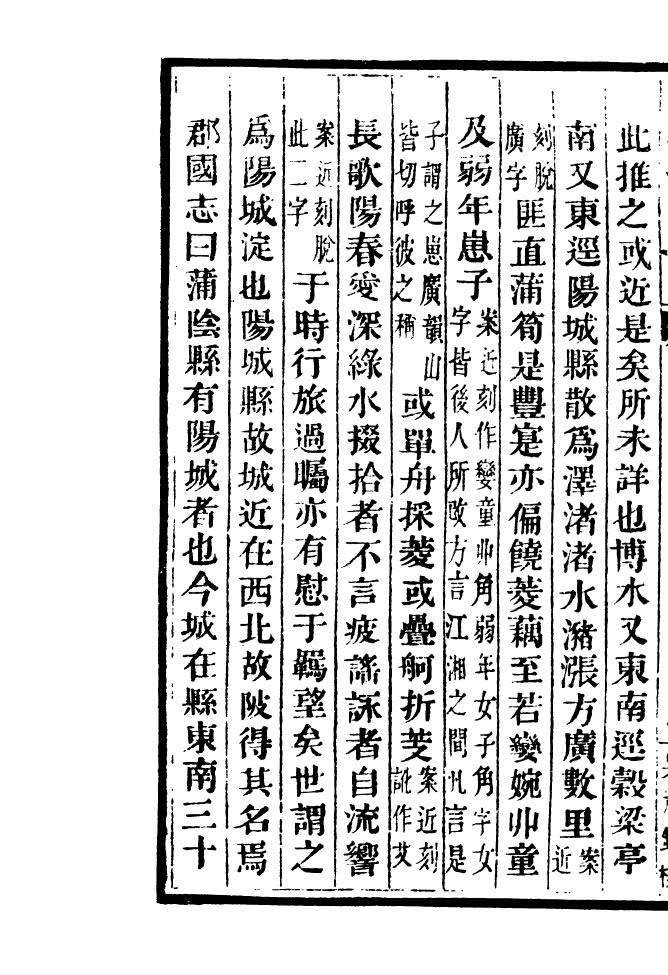 此推之或近是矣所未詳也博水又東南逕穀梁亭
南又東逕陽城縣散爲澤渚渚水瀦漲方廣數里案近
刻脫廣字匪直蒲筍是豐寔亦偏饒菱藕至若孌婉丱童
及弱年崽子案近刻作孌童丱角弱年女子角字女字皆後人所改方言江湘之間凡言是
子謂之崽廣韻山皆切呼彼之稱或單舟採菱或疊舸折芰案近刻訛作艾
長歌陽春愛深綠水掇拾者不言疲謠詠者自流響
案近刻脫此二字于時行旅過矚亦有慰于羈望矣世謂之
爲陽城淀也陽城縣故城近在西北故陂得其名焉
郡國志曰蒲陰縣有陽城者也今城在縣東南三十